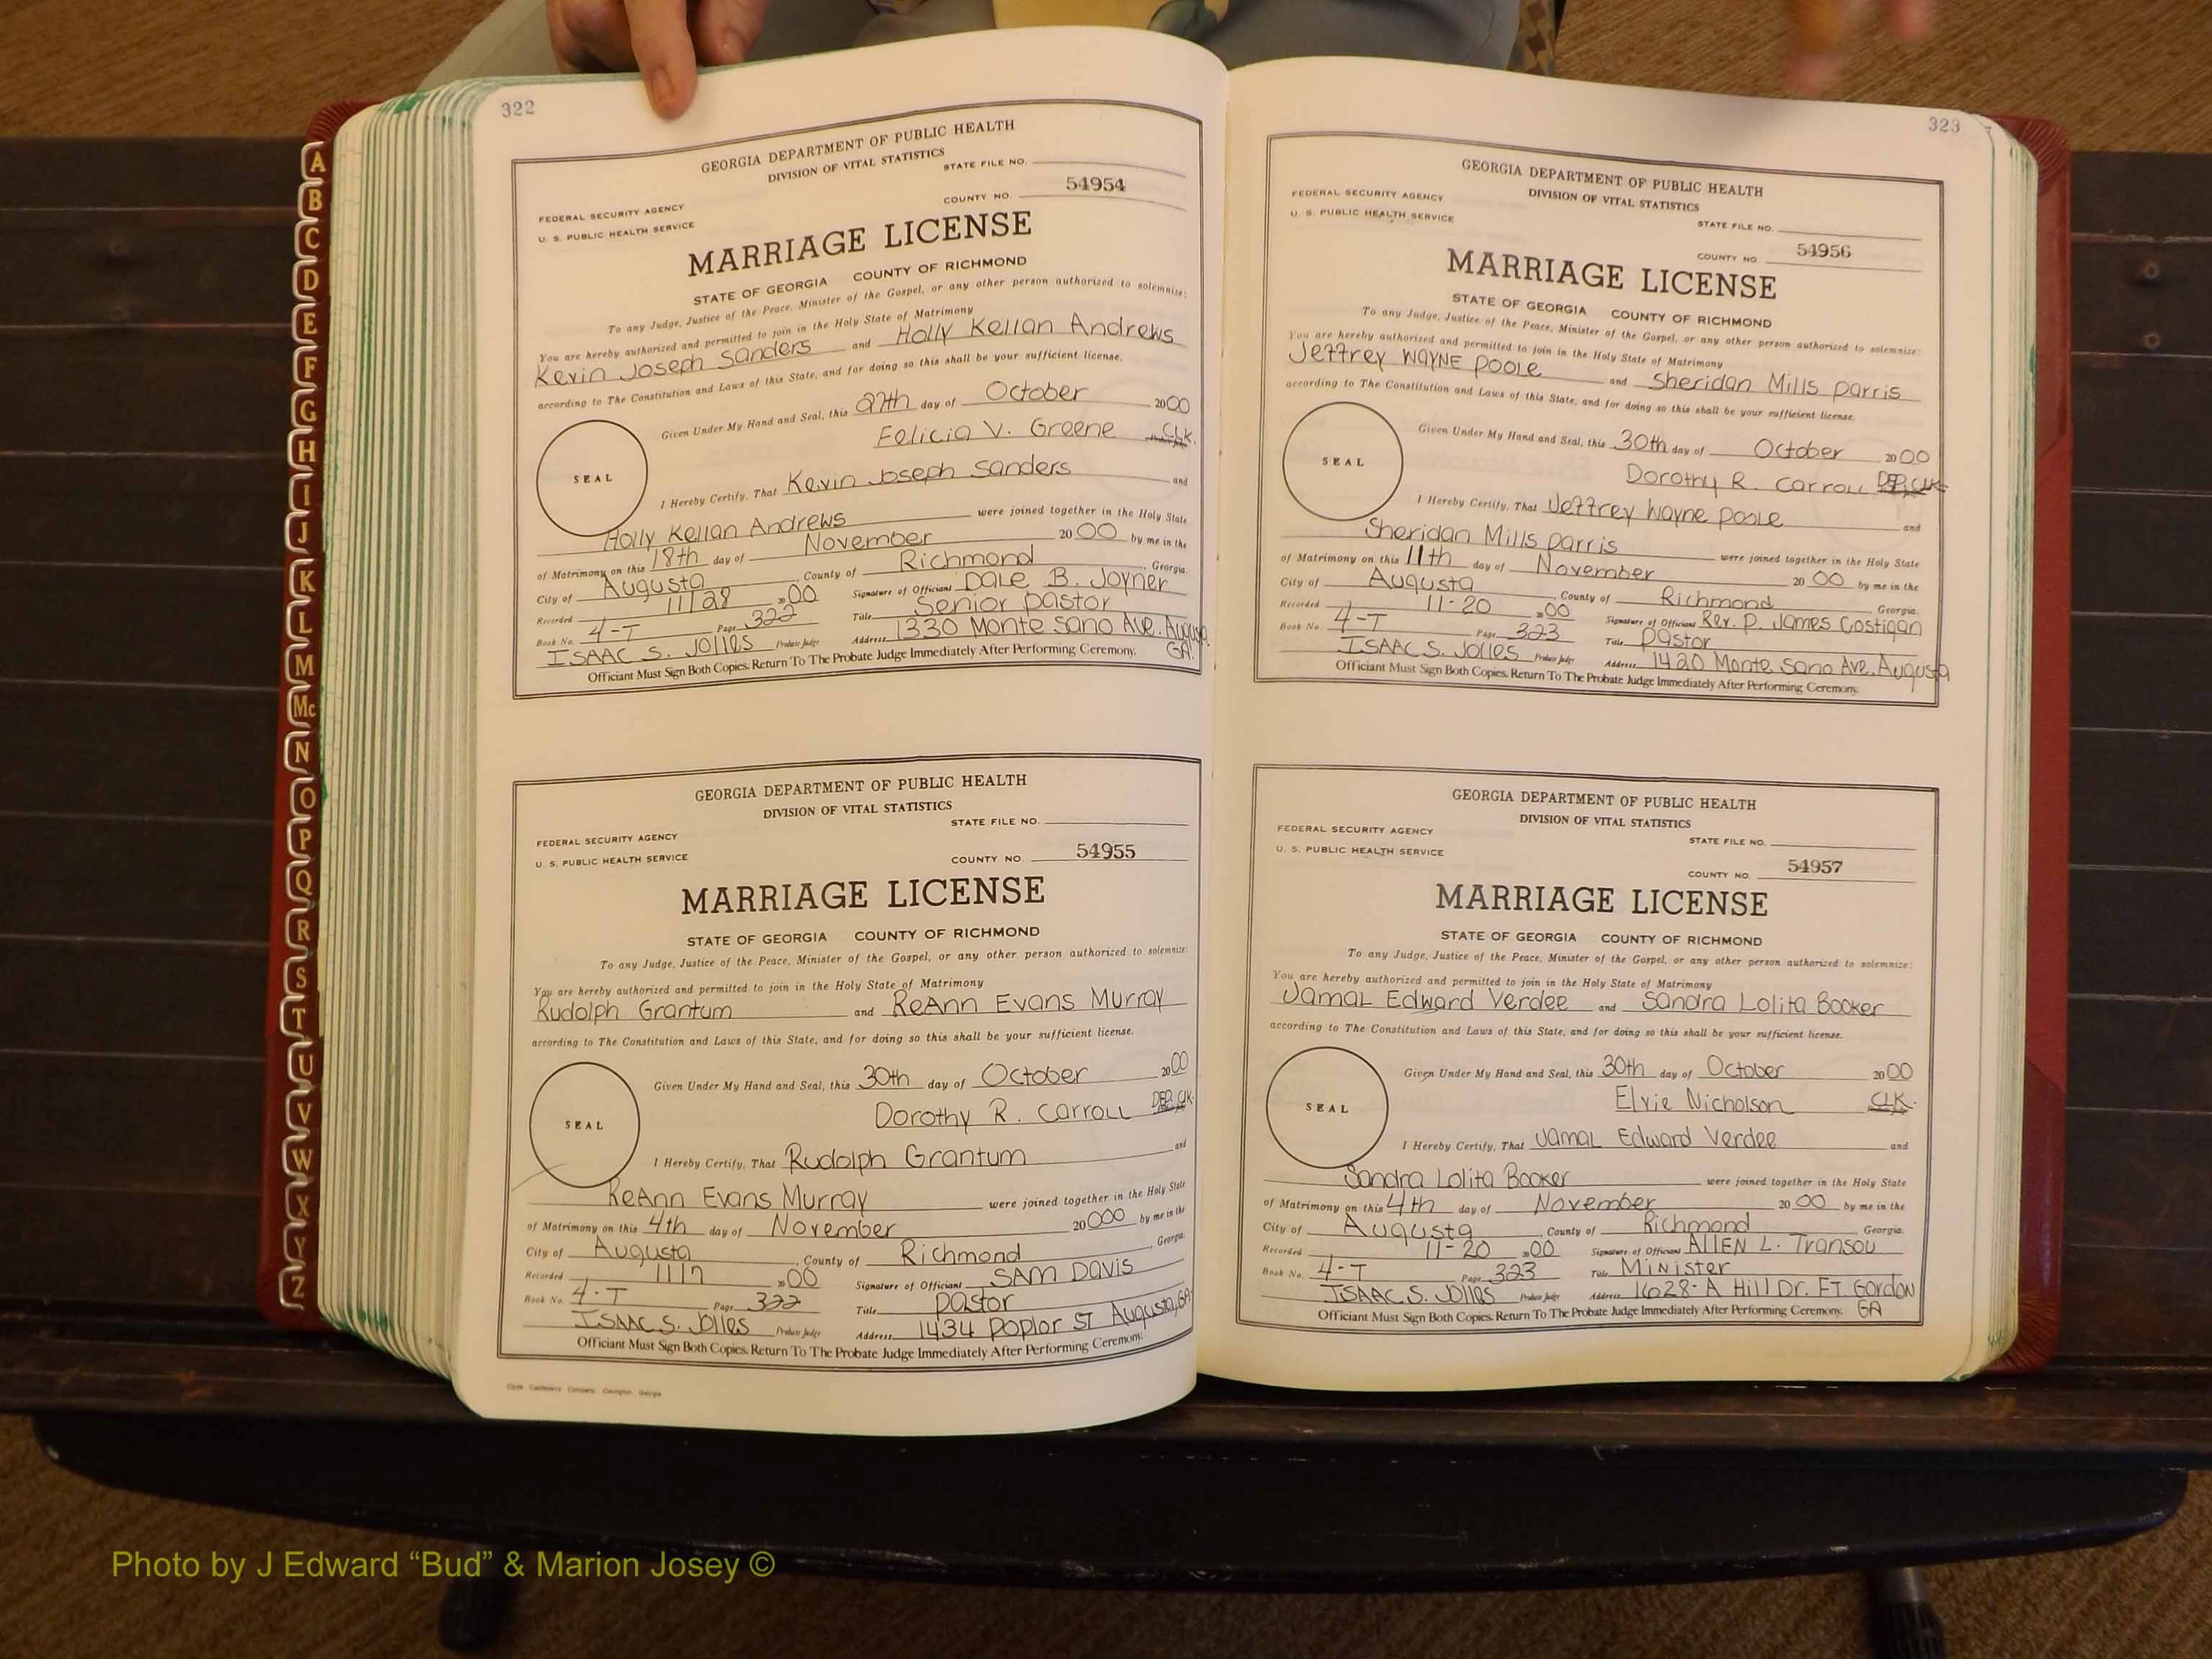 322
GEORGIA DEPARTMENT OF PUBLIC HEALTH
DIVISION OF VITAL STATISTICS
STATE FILE NO.
FEDERAL SECURITY AGENCY
COUNTY NO. 54954
U. S. PUBLIC HEALTH SERVICE
MARRIAGE LICENSE
STATE OF GEORGIA COUNTY OF RICHMOND
To any Judge, Justice of the Peace, Minister of the Gospel, or any other person authorized to solemnize:
You are hereby authorized and permitted to join in the Holy State of Matrimony
Kevin Joseph Sanders and Holly Kellan Andrews
according to The Constitution and Laws of this State, and for doing so this shall be your sufficient license.
Given Under My Hand and Seal, this 27th day of October 2000
Felicia V. Greene CLK.
SEAL
I Hereby Certify, That Kevin Joseph Sanders and
Holly Kellan Andrews were joined together in the Holy State
of Matrimony on this 18th day of November 2000 by me in the
City of Augusta, County of Richmond, Georgia
Recorded 11/28 2000 Signature of Officiant Dale B. Joyner
Book No. 4-T Page 322 Title Senior Pastor
ISAAC S. Jolles Probate Judge Address 1330 Monte Sano Ave. Augusta
GA.
Officiant Must Sign Both Copies. Return To The Probate Judge Immediately After Performing Ceremony.
GEORGIA DEPARTMENT OF PUBLIC HEALTH
DIVISION OF VITAL STATISTICS
STATE FILE NO.
FEDERAL SECURITY AGENCY
COUNTY NO. 54955
U. S. PUBLIC HEALTH SERVICE
MARRIAGE LICENSE
STATE OF GEORGIA COUNTY OF RICHMOND
To any Judge, Justice of the Peace, Minister of the Gospel, or any other person authorized to solemnize:
You are hereby authorized and permitted to join in the Holy State of Matrimony
Rudolph Grantum and ReAnn Evans Murray
according to The Constitution and Laws of this State, and for doing so this shall be your sufficient license.
Given Under My Hand and Seal, this 30th day of October 2000
Dorothy R. Carroll DEP. CLK.
SEAL
I Hereby Certify, That Rudolph Grantum and
ReAnn Evans Murray were joined together in the Holy State
of Matrimony on this 4th day of November 20000 by me in the
City of Augusta, County of Richmond, Georgia.
Recorded 11/7 2000 Signature of Officiant SAM DAVIS
Book No. 4-T Page 322 Title Pastor
ISAAC S. Jolles Probate Judge Address 1434 Poplar ST Augusta, GA
Officiant Must Sign Both Copies. Return To The Probate Judge Immediately After Performing Ceremony.
323
GEORGIA DEPARTMENT OF PUBLIC HEALTH
DIVISION OF VITAL STATISTICS
FEDERAL SECURITY AGENCY
U. S. PUBLIC HEALTH SERVICE
STATE FILE NO.
COUNTY NO. 54956
MARRIAGE LICENSE
STATE OF GEORGIA COUNTY OF RICHMOND
To any Judge, Justice of the Peace, Minister of the Gospel, or any other person authorized to solemnize:
You are hereby authorized and permitted to join in the Holy State of Matrimony
Jeffrey WAYNE Poole and Sheridan Mills Parris
according to The Constitution and Laws of this State, and for doing so this shall be your sufficient license.
Given Under My Hand and Seal, this 30th day of October 2000
Dorothy R. Carroll DEP. CLK
SEAL
I Hereby Certify, That Jeffrey Wayne Poole and
Sheridan Mills Parris were joined together in the Holy State
of Matrimony on this 11th day of November 2000 by me in the
City of Augusta, County of Richmond, Georgia.
Recorded 11-20 2000 Signature of Officiant Rev. P. James Costigan
Book No. 4-T Page 323 Title Pastor
ISAAC S. Jolles Probate Judge Address 1420 Monte Sano Ave. Augusta
Officiant Must Sign Both Copies. Return To The Probate Judge Immediately After Performing Ceremony.
GEORGIA DEPARTMENT OF PUBLIC HEALTH
DIVISION OF VITAL STATISTICS
FEDERAL SECURITY AGENCY
STATE FILE NO.
U. S. PUBLIC HEALTH SERVICE
COUNTY NO. 54957
MARRIAGE LICENSE
STATE OF GEORGIA COUNTY OF RICHMOND
To any Judge, Justice of the Peace, Minister of the Gospel, or any other person authorized to solemnize:
You are hereby authorized and permitted to join in the Holy State of Matrimony
Jamal Edward Verdee and Sandra Lolita Booker
according to The Constitution and Laws of this State, and for doing so this shall be your sufficient license.
Given Under My Hand and Seal, this 30th day of October 2000
Elvie Nicholson CLK.
SEAL
I Hereby Certify, That Jamal Edward Verdee and
Sandra Lolita Booker were joined together in the Holy State
of Matrimony on this 4th day of November 2000 by me in the
City of Augusta, County of Richmond, Georgia.
Recorded 11-20 2000 Signature of Officiant ALLEN L. Transou
Book No. 4-T Page 323 Title Minister
ISAAC S. Jolles Probate Judge Address 1628-A Hill Dr. FT. Gordon
Officiant Must Sign Both Copies. Return To The Probate Judge Immediately After Performing Ceremony. GA
A
B
C
D
E
F
G
H
I
J
K
L
M
Mc
N
O
P
Q
R
S
T
U
V
W
X
Y
Z
Photo by J Edward “Bud” & Marion Josey ©